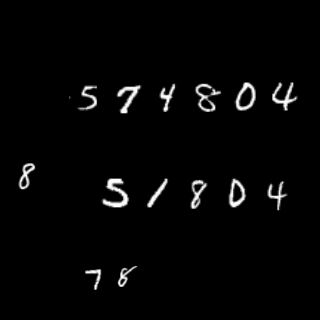 574804
8 51804
78